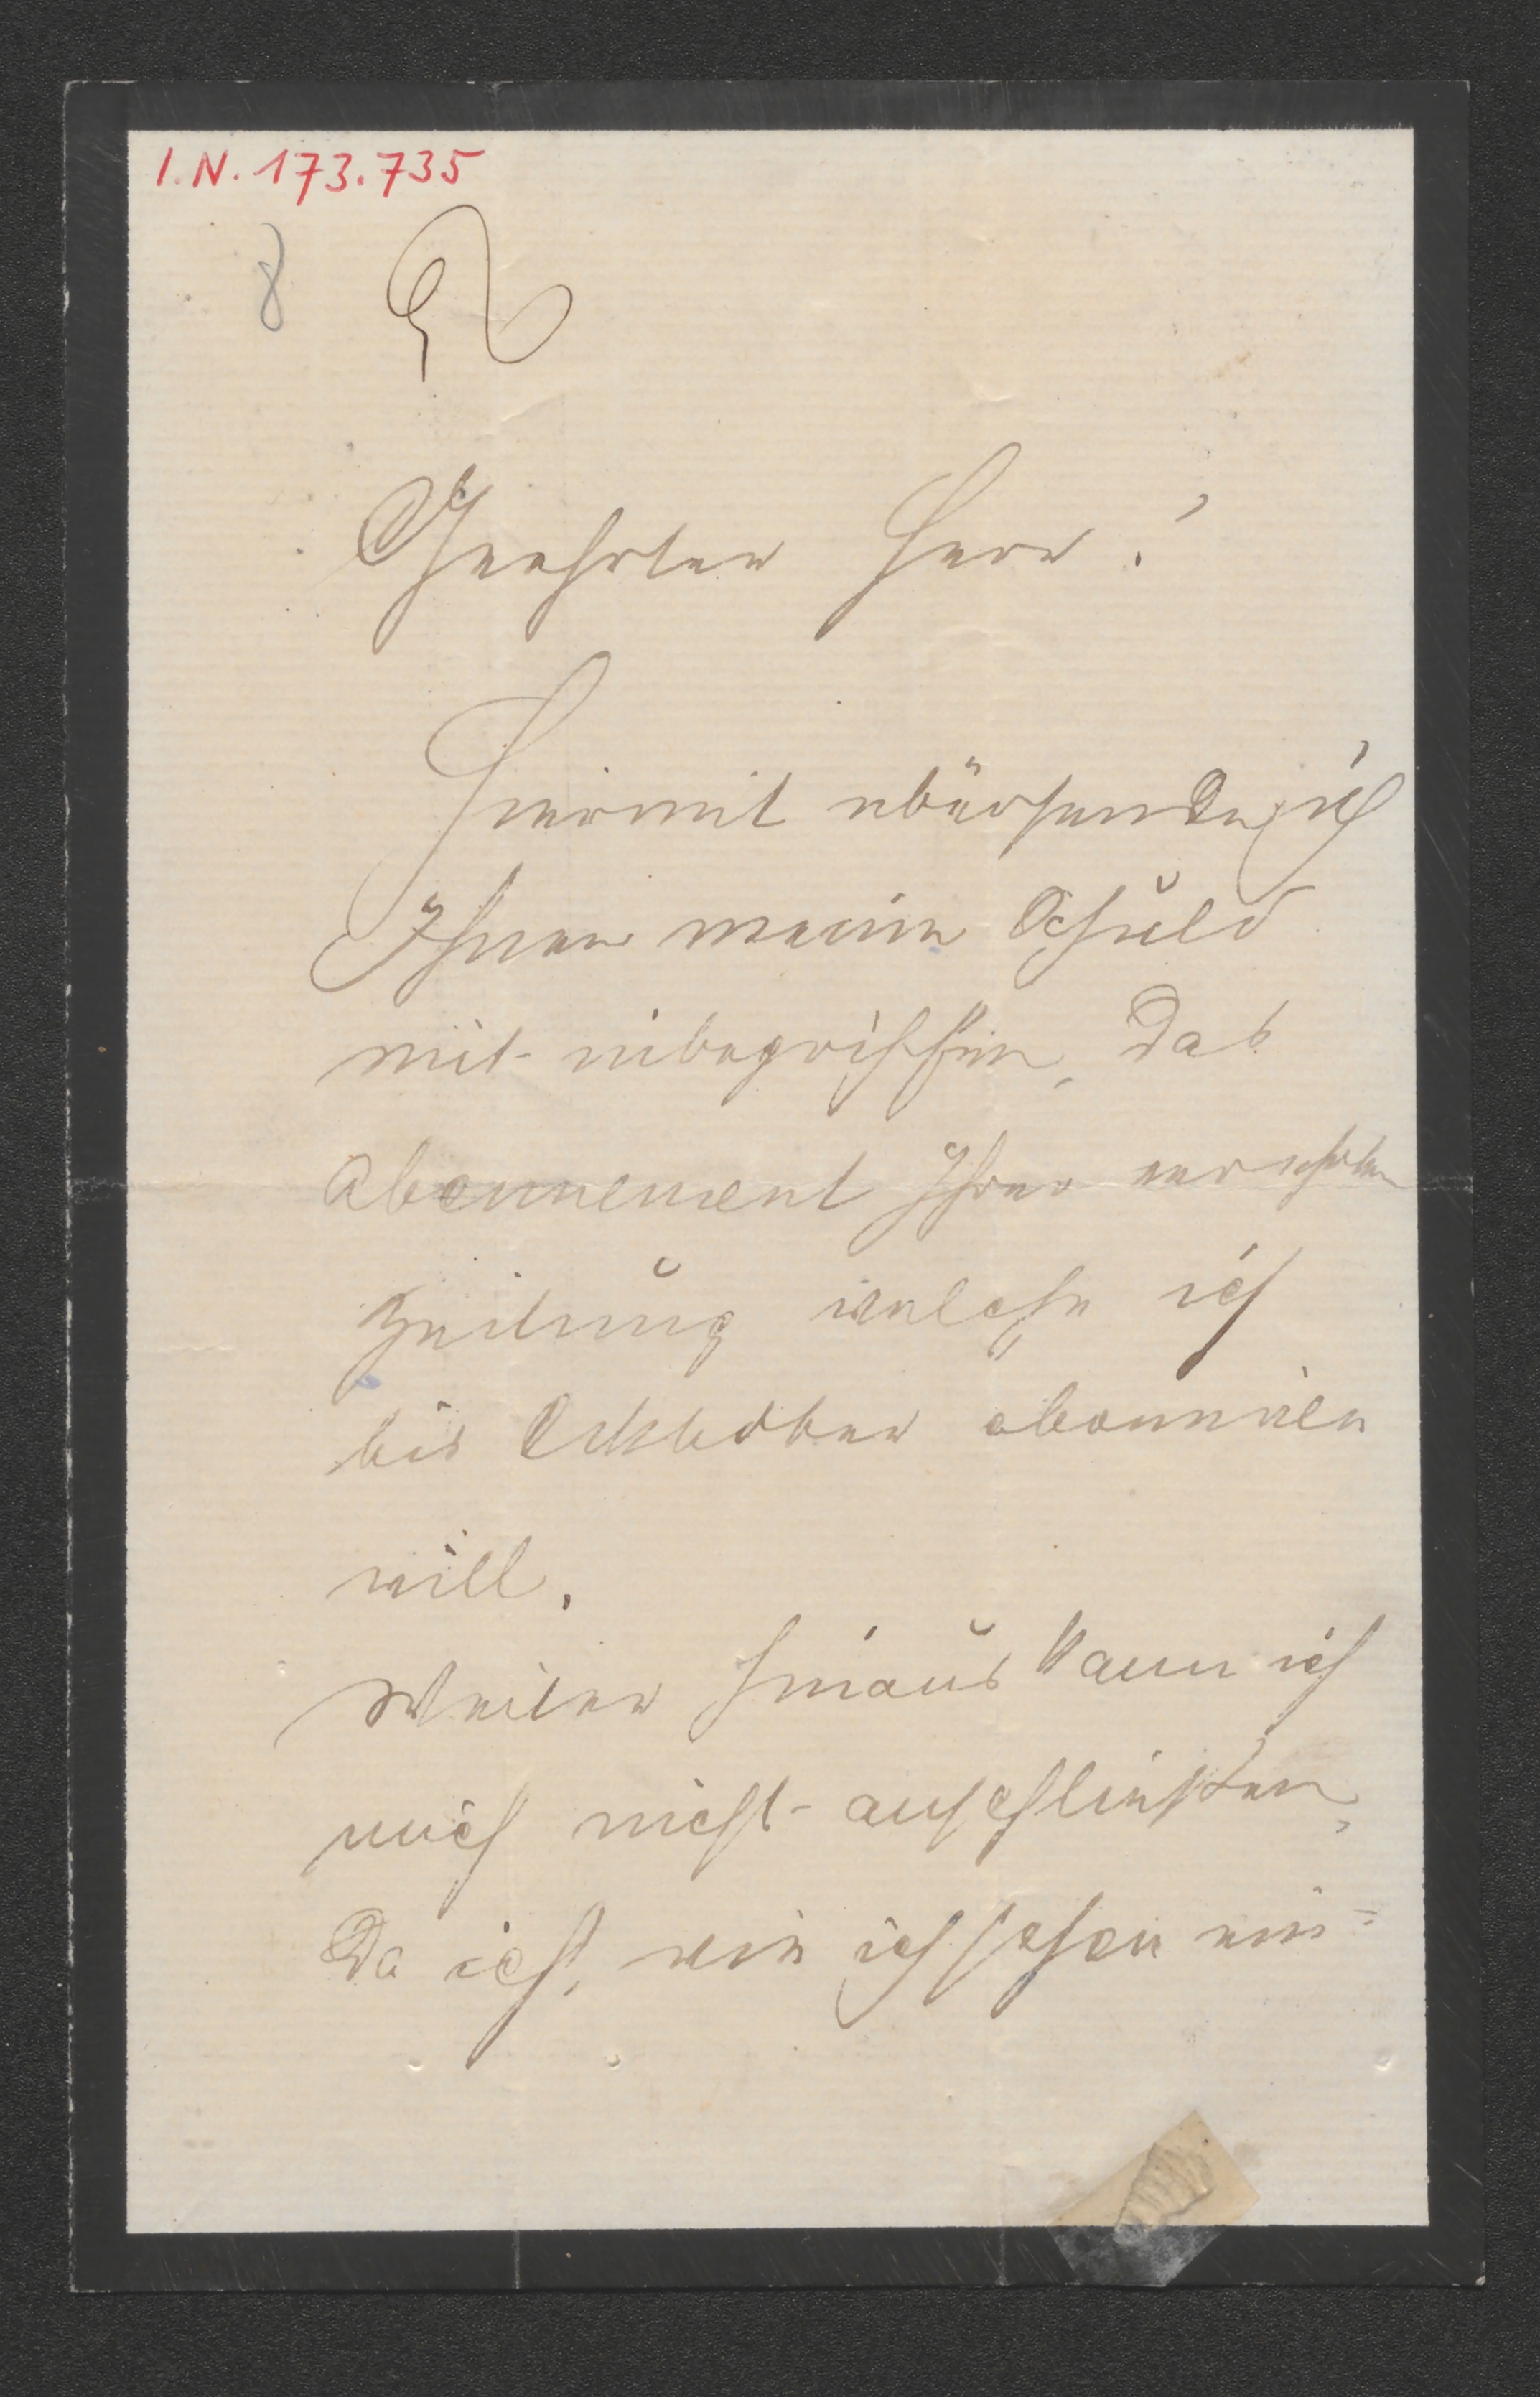 I.N. 173.735
8
Geehrter Herr!
Hiermit übersende ich
Ihnen meine Schuld
mit inbegriffen, das
Abonnement Ihrer verehrten
Zeitung welche ich
bis Oktober abonniren
will.
Weiter hinaus kann ich
mich nicht anschließen,
Da ich, wie ich schon ein=